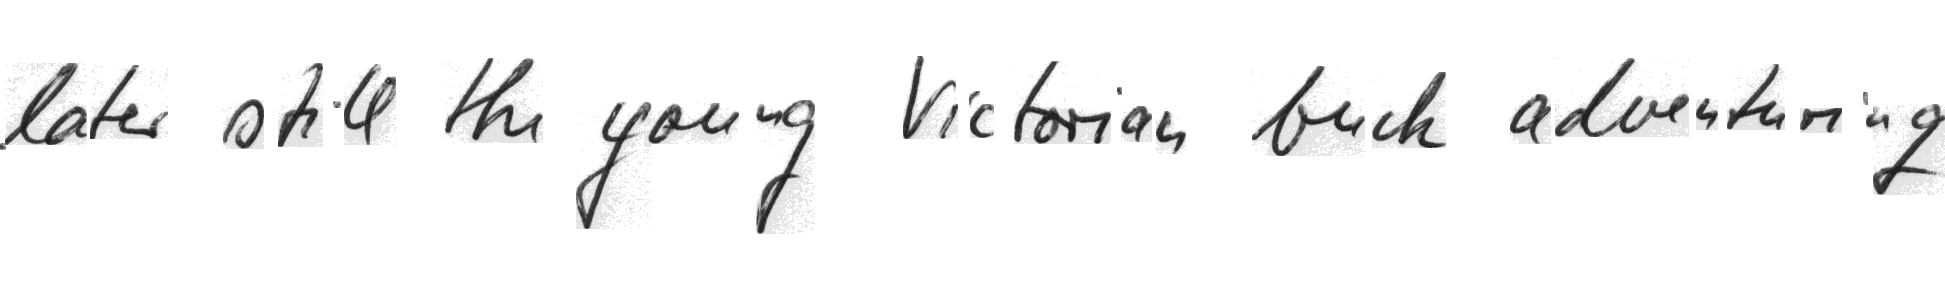 later still the young Victorian buck adventuring